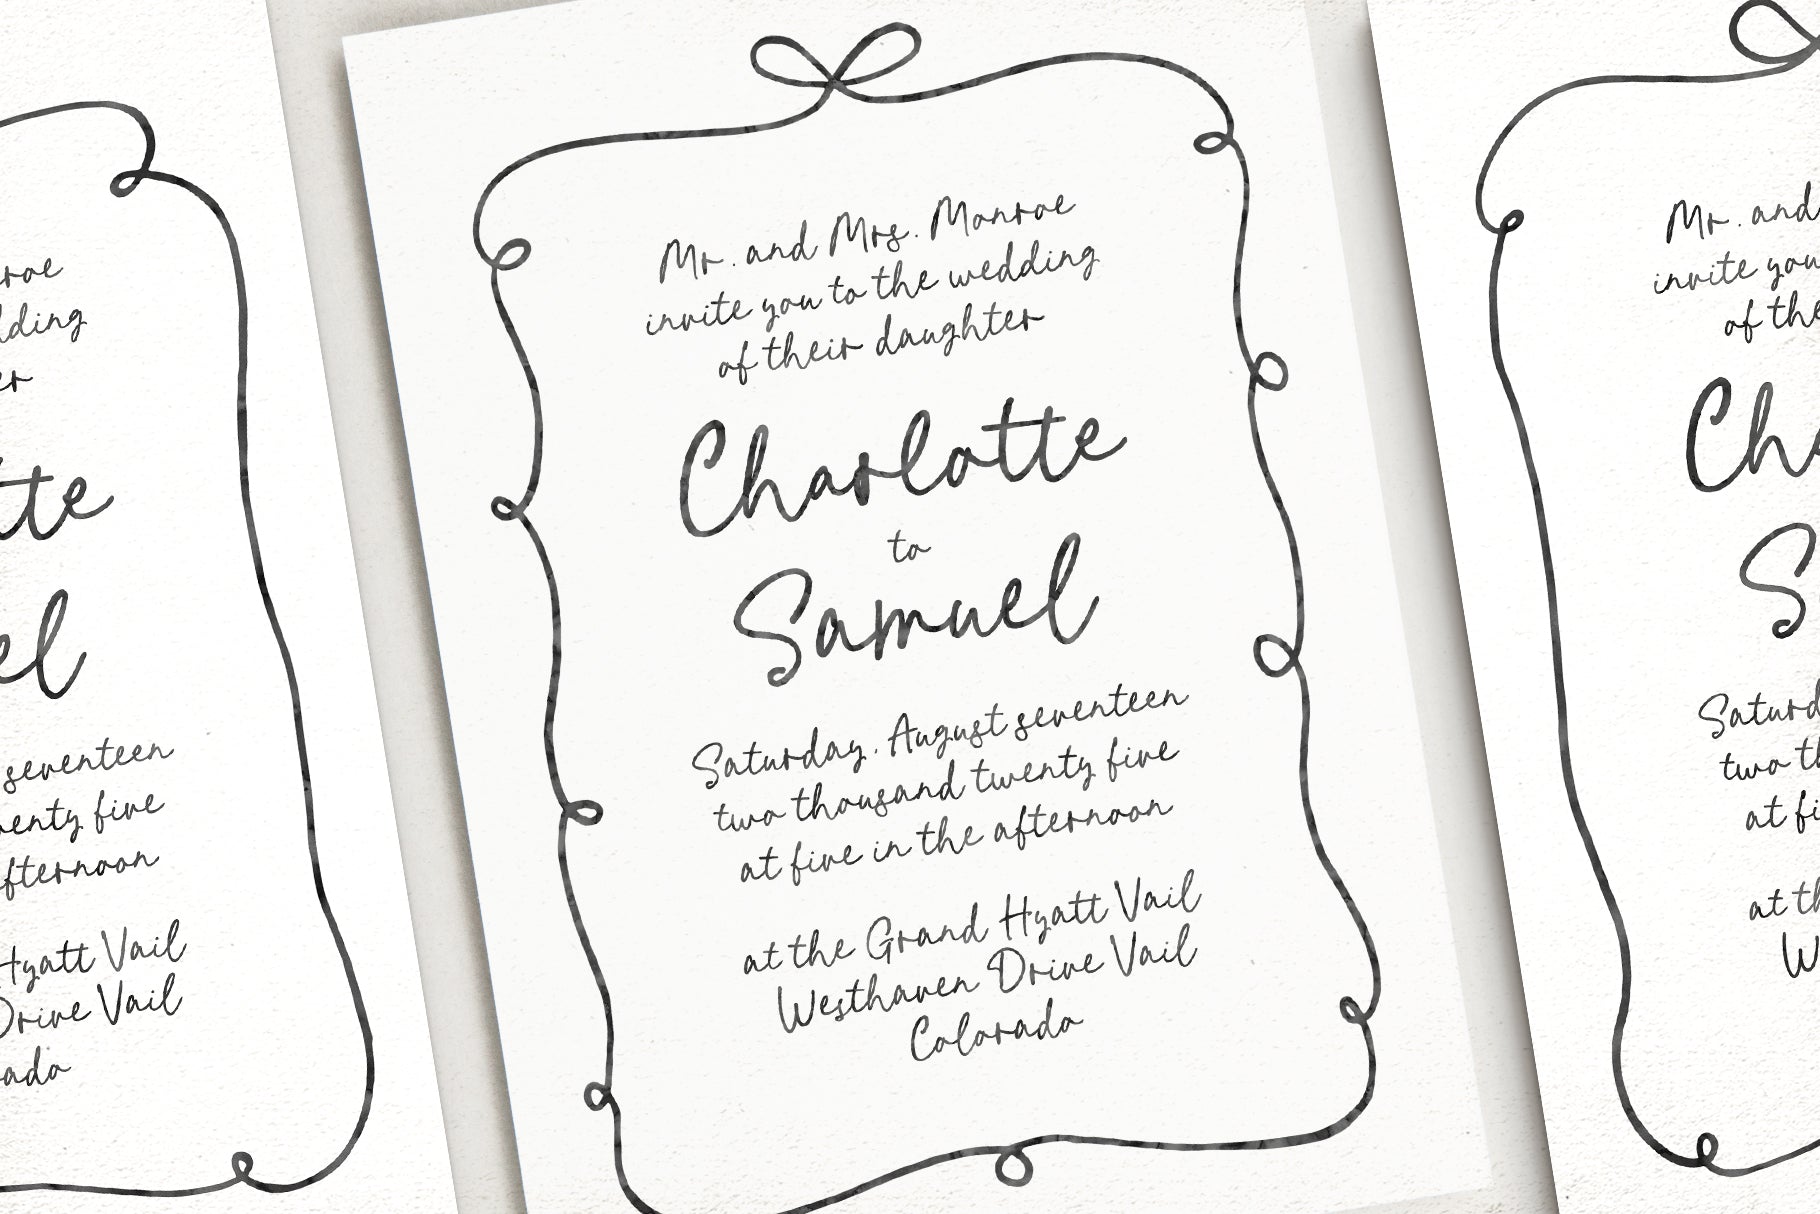 Mr. and Mrs. Monroe
invite you to the wedding
of their daughter
Charlotte
to
Samuel
Saturday. August seventeen
two thousand twenty five
at five in the afternoon
at the Grand Hyatt Vail
Westhaven Drive Vail
Colorado
roe
dding
er
tte
el
seventeen
enty five
fternoon
Hyatt Vail
Drive Vail
ado
Mr. and
invite you
of the
Cha
S
Saturd
two th
at fi
at th
W